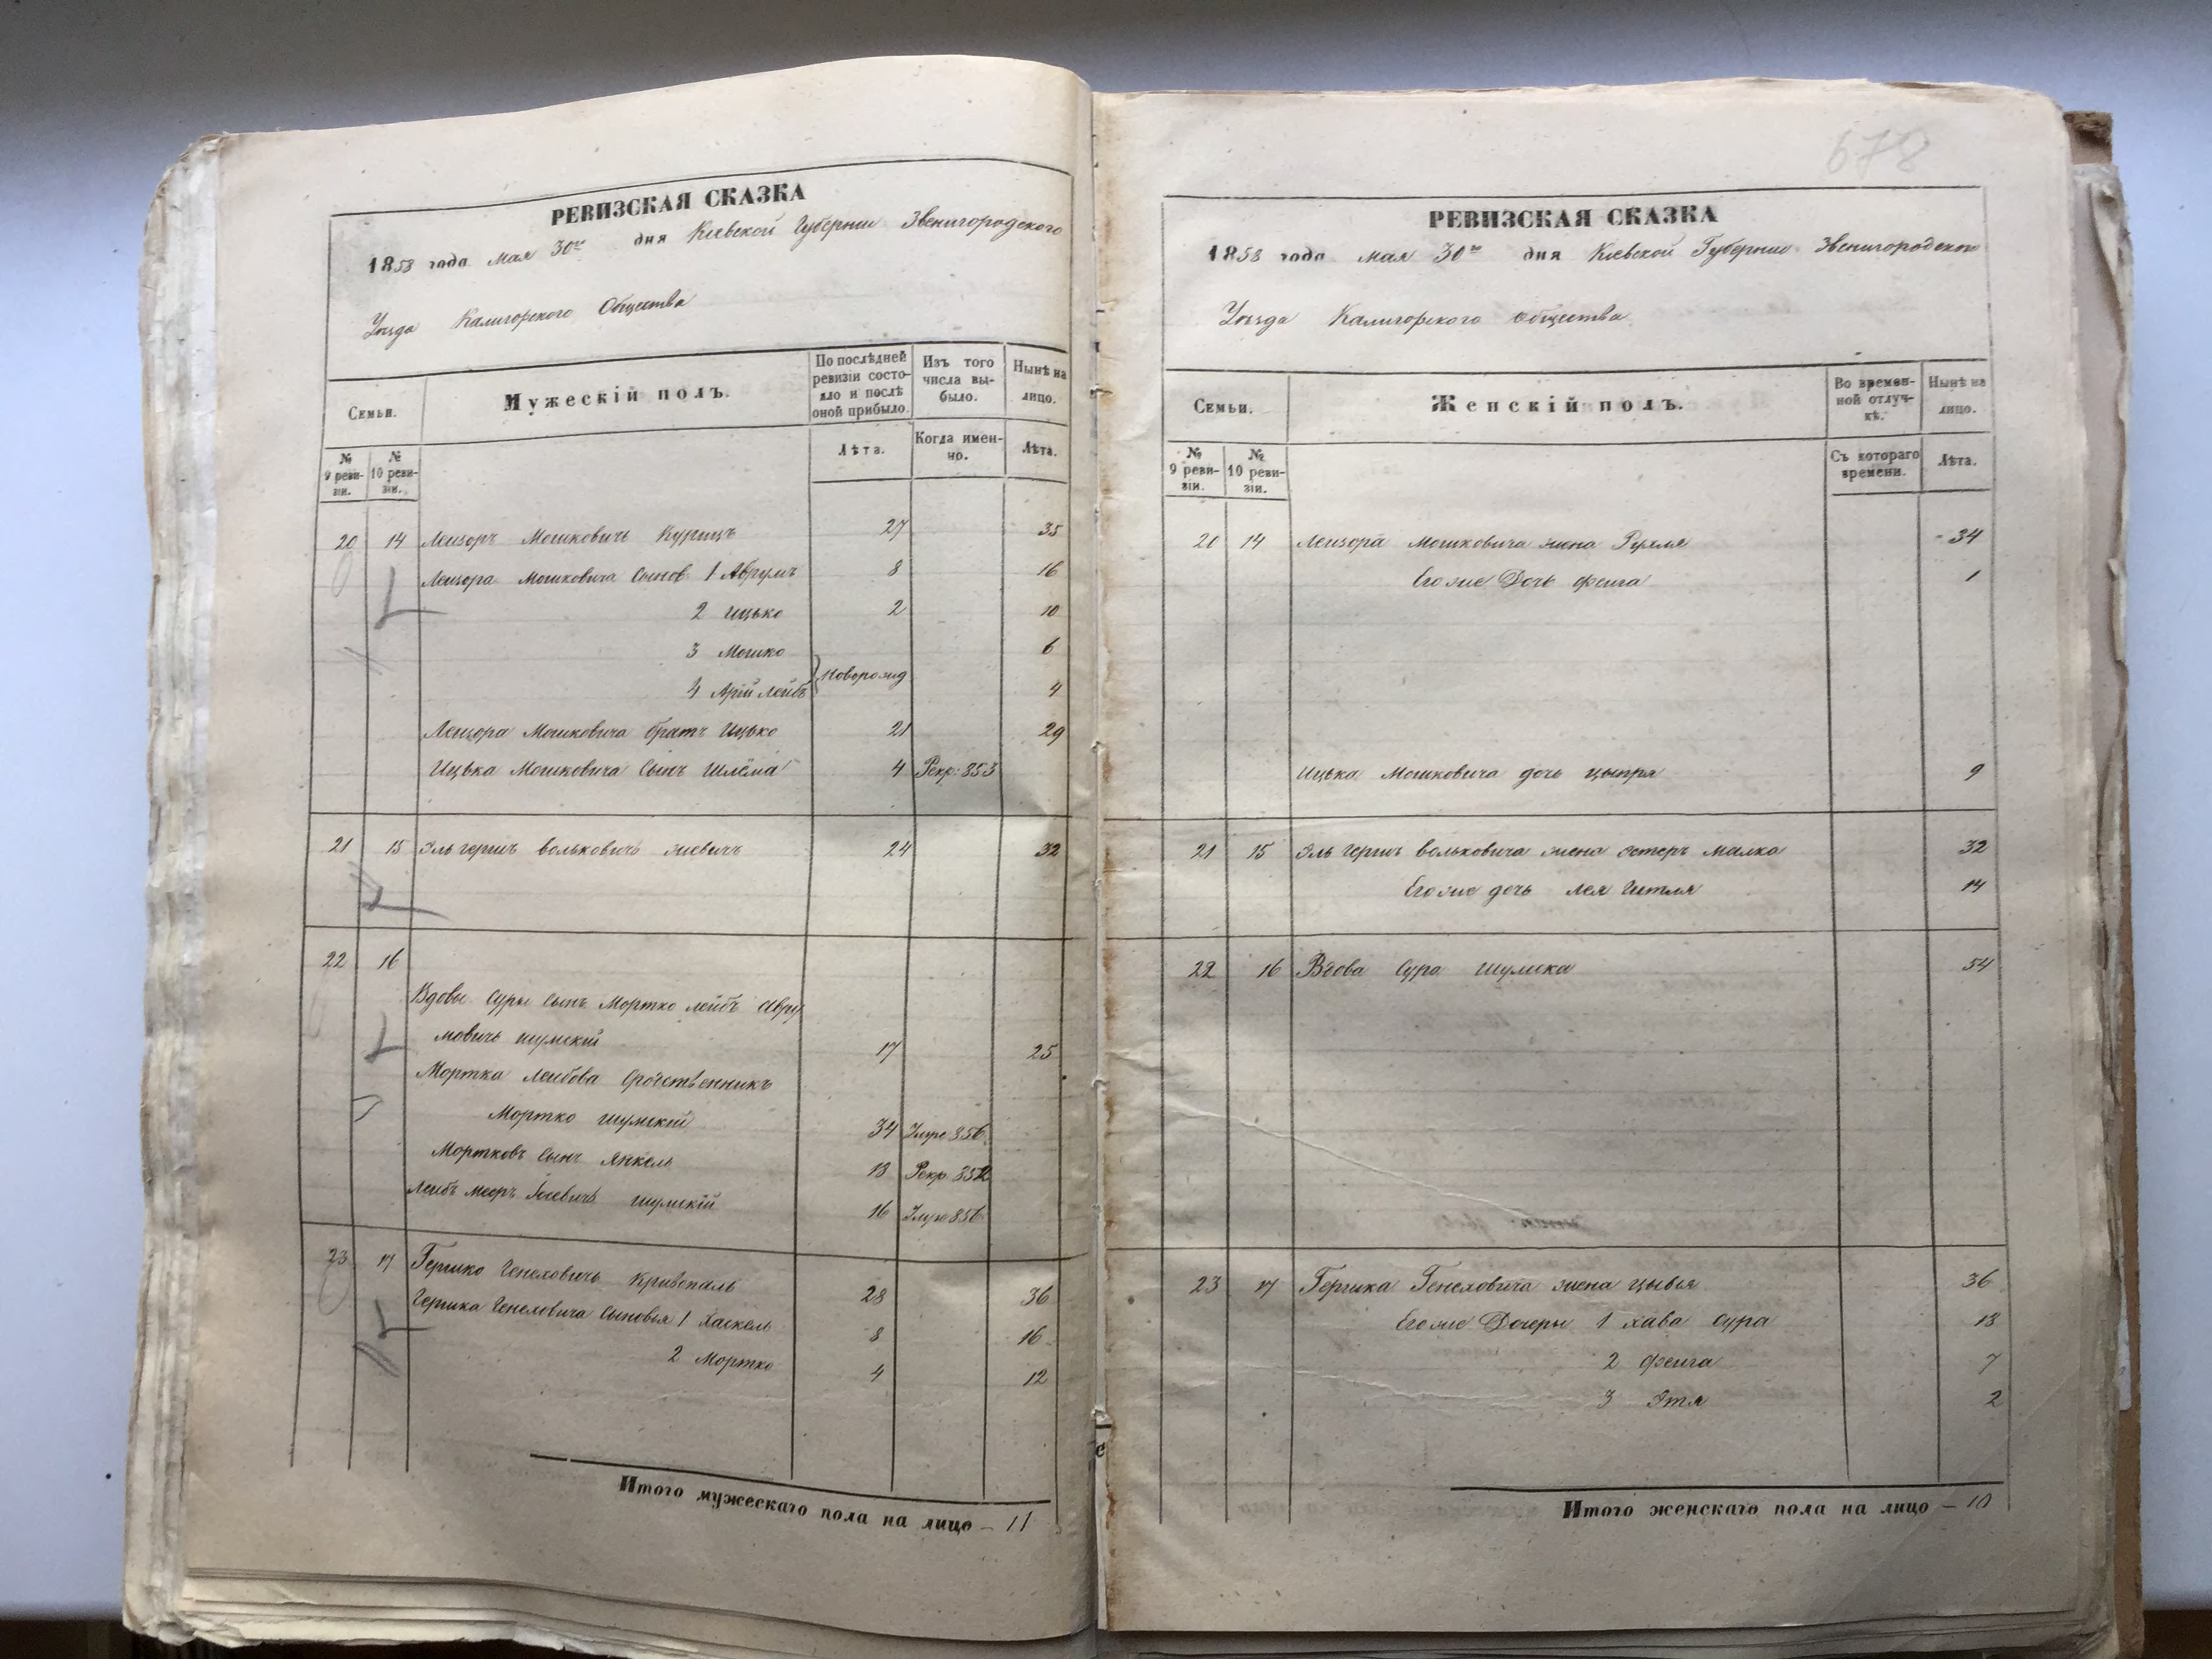 РЕВИЗСКАЯ СКАЗКА
1858 года мая 30го дня Киевской Губернии Звенигородского
Уѣзда Калигорского Общества
Семьи.
Мужескій полъ.
По послѣдней ревизіи состояло и послѣ оной прибыло.
Изъ того числа выбыло.
Нынѣ на лицо.
№ 9 ревизіи.
№ 10 ревизіи.
Лѣта.
Когда именно.
Лѣта.
20 14 Лейзоръ Мошковичъ Курицъ 27 35
Лейзора Мошковича Сынов. 1 Аврумъ 8 16
2 Ицько 2 10
3 Мошко 6
Новорожд
4 Арій Лейбъ 4
Лейзора Мошковича братъ Ицько 21 29
Ицька Мошковича Сынъ Шлёма 4 Рекр: 853
21 15 Эль Гершъ Вольковичъ 24 32
22 16
Вдовы Суры Сынъ Мортко Лейбъ Авру
мовичъ Шумскій 17 25
Мортка Лейбова Сродственникъ
Мортко Шумскій 34 Умре 856
Мортковъ Сынъ Янкель 18 Рекр 852
Лейбъ Мееръ Шумскій 16 Умре 856
23 17 Гершко Генеховичъ Кривопаль 28 36
Гершка Генеховича Сыновья 1 Хаскель 8 16
2 Мортко 4 12
Итого мужескаго пола на лицо – 11
678
РЕВИЗСКАЯ СКАЗКА
1858 года мая 30го дня Киевской Губернии Звенигородского
Уѣзда Калигорского Общества
Семьи.
Женскій полъ.
Во временной отлучкѣ.
Нынѣ на лицо.
№ 9 ревизіи.
№ 10 ревизіи.
Съ котораго времени.
Лѣта.
20 14 Лейзора Мошковича жена Рухля 34
Его же Дочь Фейга 1
Ицька Мошковича дочь Цыпря 9
21 15 Эль Герша Вольковича жена Эстеръ Малка 32
Его же дочь Лея Гитля 14
22 16 Вдова Сура Шумска 54
23 17 Гершка Генеховича жена Цывья 36
Его же Дочери 1 Хава Сура 13
2 Фейга 7
3 Этя 2
Итого женскаго пола на лицо – 10